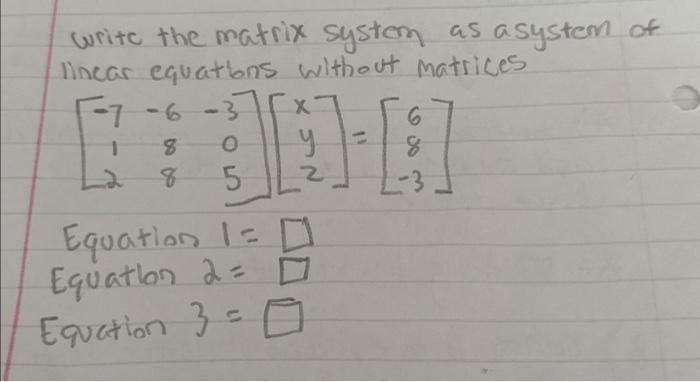 write the matrix system as a system of
linear equations without matrices
[-7 -6 -3] [x] = [6]
[1 8 0] [y] [8]
[2 8 5] [z] [-3]
Equation 1 = □
Equation 2 = □
Equation 3 = □